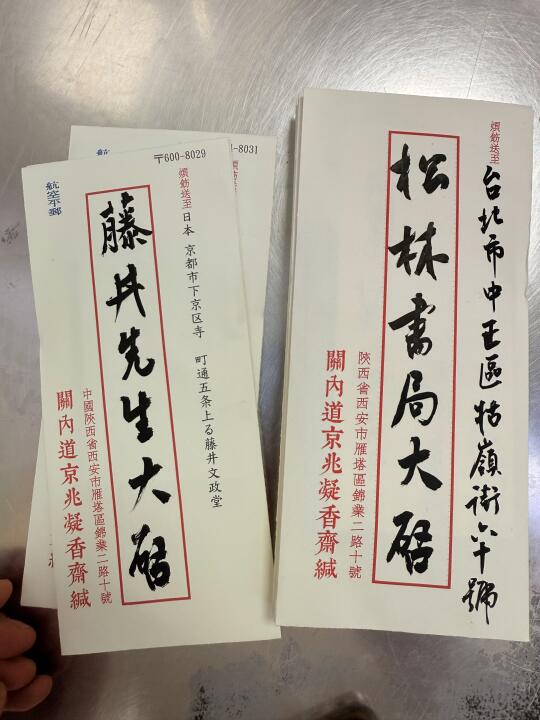 〒600-8029
煩飭送至
日本 京都市下京区寺 町通五条上る藤井文政堂
藤井先生大啓
航空平郵
中國陝西省西安市雁塔區錦業二路十號
關內道京兆凝香齋緘
-8031
航
緘
煩飭送至
台北市中正區牯嶺街六十號
松林書局大啓
陝西省西安市雁塔區錦業二路十號
關內道京兆凝香齋緘